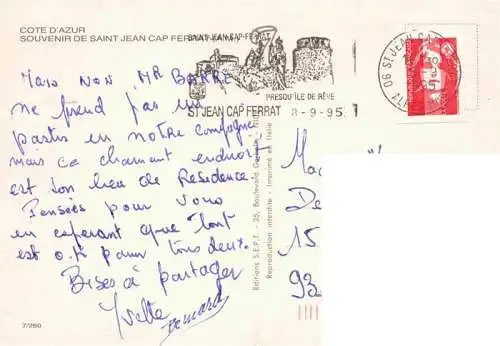 COTE D'AZUR
SOUVENIR DE SAINT JEAN CAP FERRAT
SAINT-JEAN-CAP-FERRAT
PRESQU'ILE DE RÊVE
ST JEAN CAP FERRAT 8-9-95
06 ST JEAN CAP
Mais NON MR BARRE
ne prend pas un
pastis en notre compagnie
mais ce charmant endroit
est son lieu de Residence.
Pensées pour vous
en esperant que tout
est o.k pour tous deux.
Bises à partager
Yvette Bernard
7/260
Editions S.E.P.T. - 25, Boulevard
Reproduction interdite - Imprimé en Italie
15
93